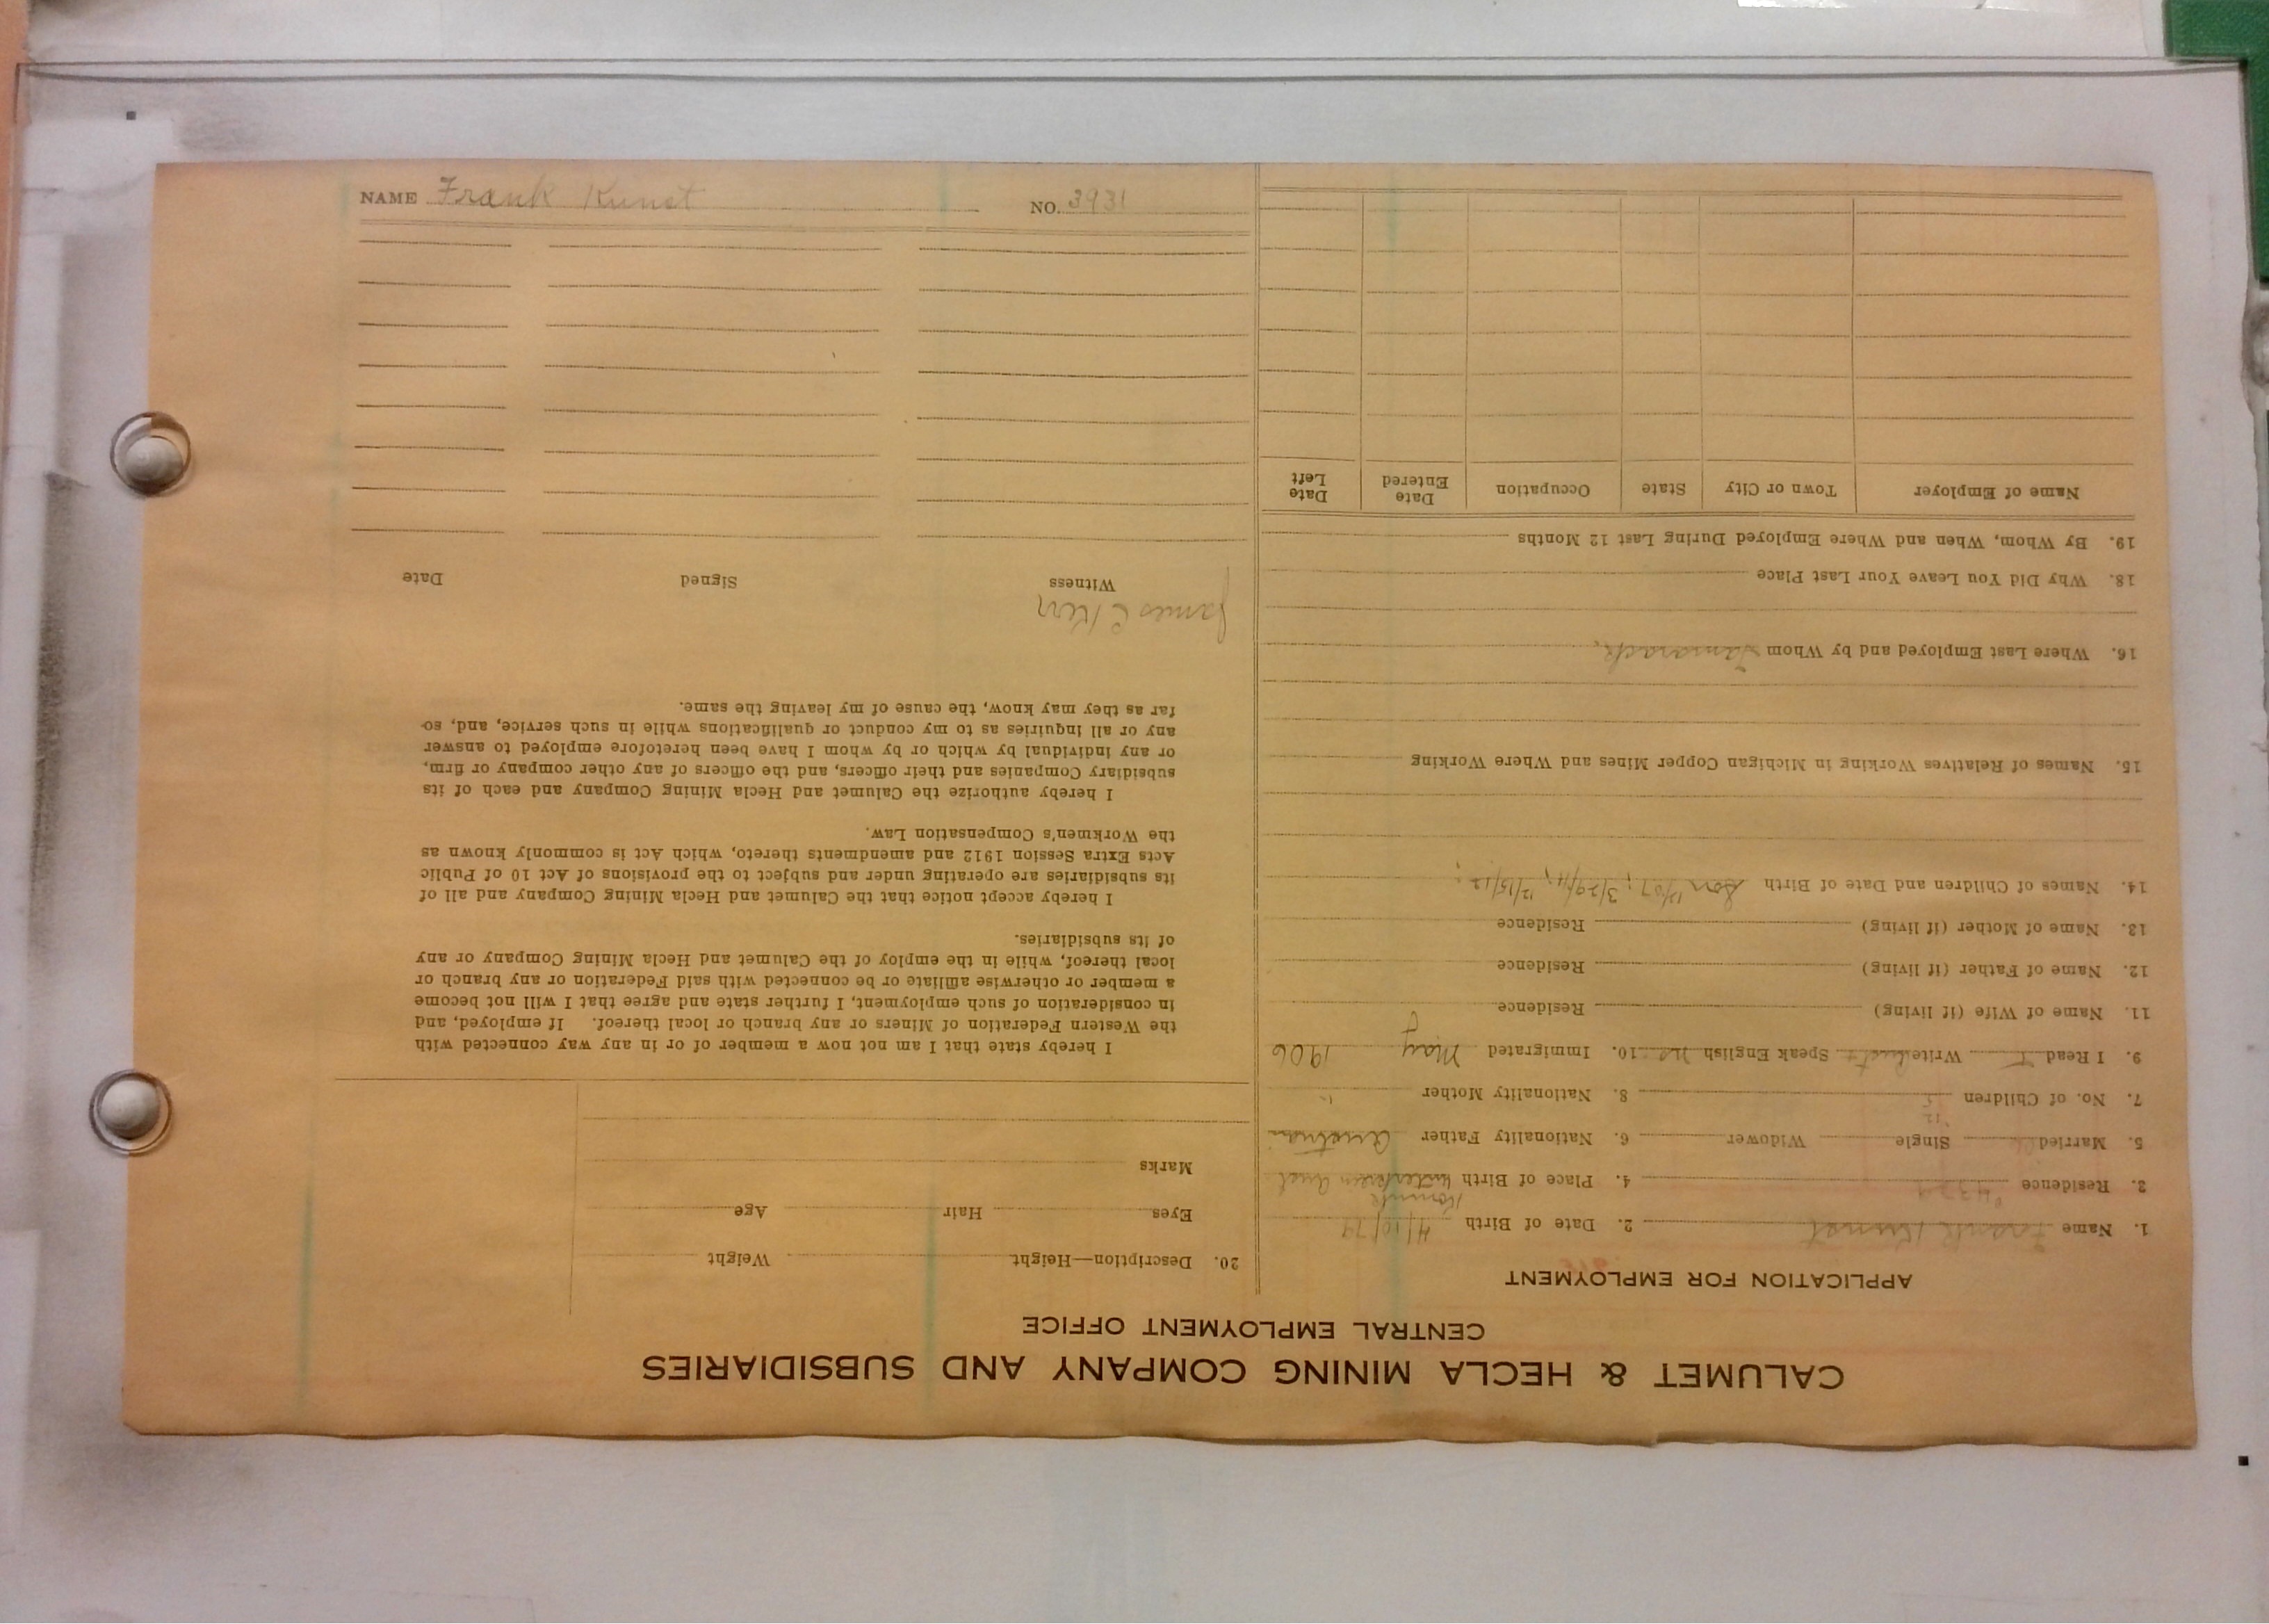 NAME Frank Kunst NO. 3931
CALUMET & HECLA MINING COMPANY AND SUBSIDIARIES
CENTRAL EMPLOYMENT OFFICE
APPLICATION FOR EMPLOYMENT
1. Name Frank Kunst 2. Date of Birth 4/10/79
3. Residence 4. Place of Birth
5. Married Single Widower 6. Nationality Father Austrian
7. No. of Children 8. Nationality Mother "
9. I Read Write Speak English no 10. Immigrated May 1906
11. Name of Wife (if living) Residence
12. Name of Father (if living) Residence
13. Name of Mother (if living) Residence
14. Names of Children and Date of Birth Son 3/29/11; 12/15/12;
15. Names of Relatives Working in Michigan Copper Mines and Where Working
16. Where Last Employed and by Whom Tamarack
18. Why Did You Leave Your Last Place
19. By Whom, When and Where Employed During Last 12 Months
Name of Employer Town or City State Occupation Date Entered Date Left
20. Description—Height Weight
Eyes Hair Age
Marks
I hereby state that I am not now a member of or in any way connected with
the Western Federation of Miners or any branch or local thereof. If employed, and
in consideration of such employment, I further state and agree that I will not become
a member or otherwise affiliate or be connected with said Federation or any branch or
local thereof, while in the employ of the Calumet and Hecla Mining Company or any
of its subsidiaries.
I hereby accept notice that the Calumet and Hecla Mining Company and all of
its subsidiaries are operating under and subject to the provisions of Act 10 of Public
Acts Extra Session 1912 and amendments thereto, which Act is commonly known as
the Workmen's Compensation Law.
I hereby authorize the Calumet and Hecla Mining Company and each of its
subsidiary Companies and their officers, and the officers of any other company or firm,
or any individual by which or by whom I have been heretofore employed to answer
any or all inquiries as to my conduct or qualifications while in such service, and, so
far as they may know, the cause of my leaving the same.
James C Kerr
Witness Signed Date